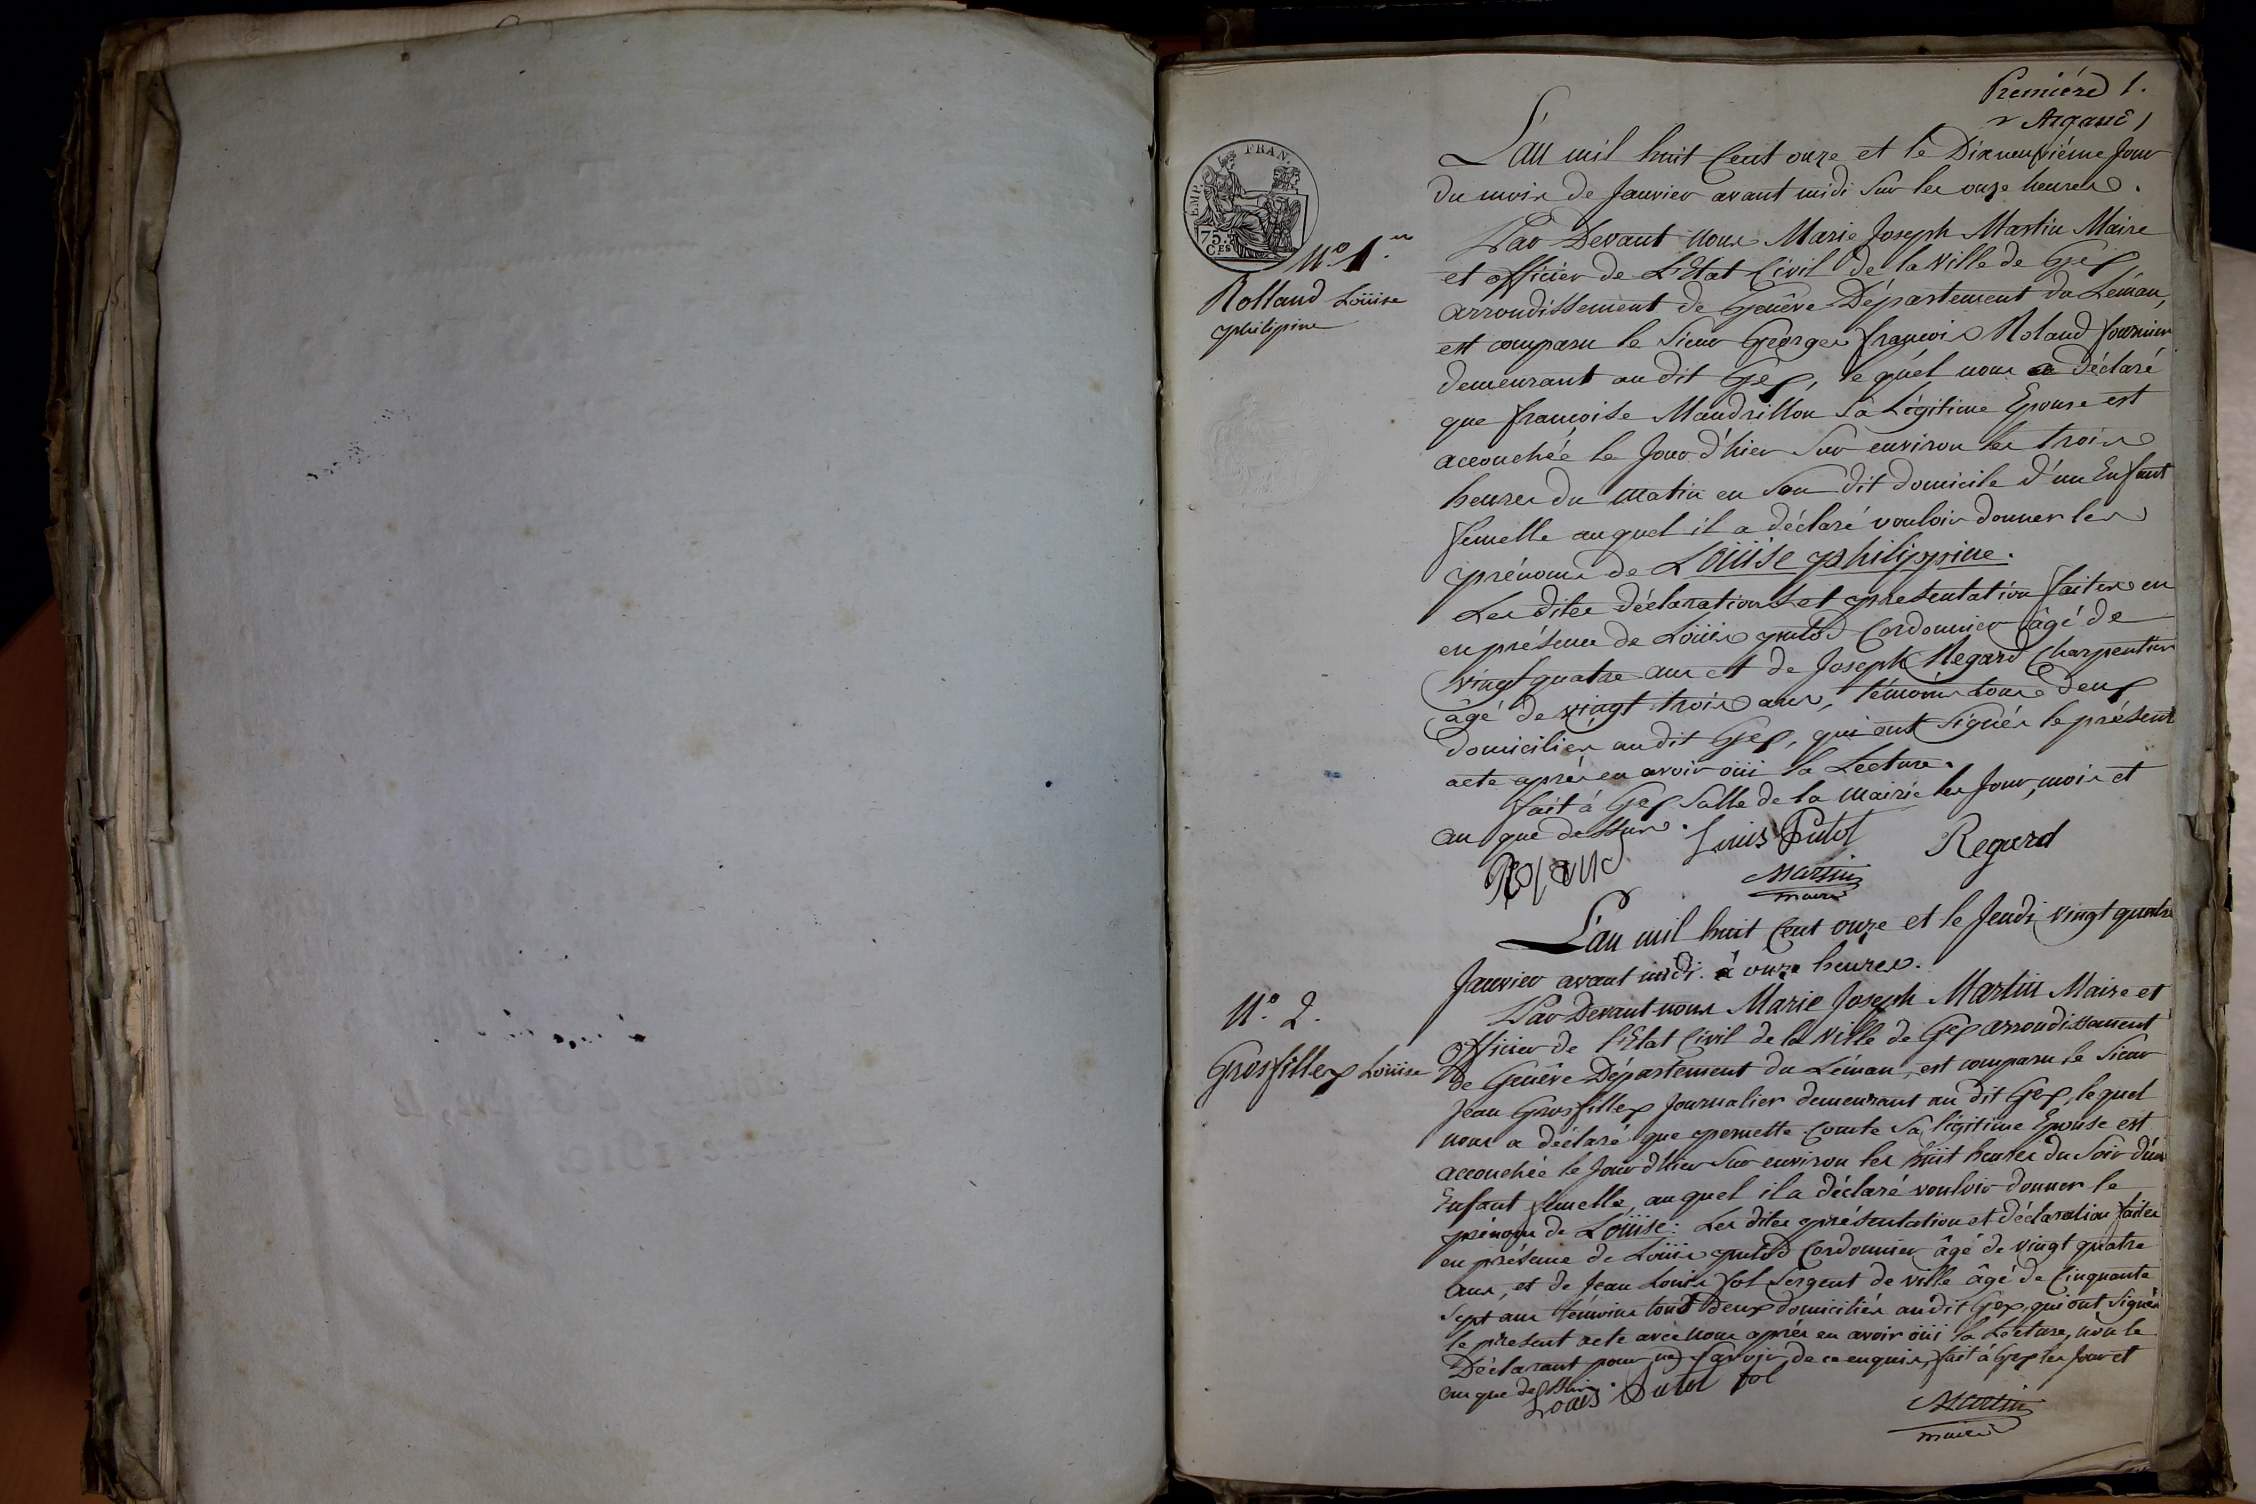 Premiére 1.
L'an mil huit Cent onze et le Dixneufviéme Jour
du mois de Janvier avant midi Sur les onze heures.
EMP. FRAN.
75. CES
N.º 1.er
Rolland Loüise
philipine
Par Devant nous Marie Joseph Martin Maire
et officier de L'Etat Civil de la Ville de Gex
arrondissement de Genêve Département du Léman,
est comparu le Sieur George françois Roland fournier
demeurant au dit Gex, le quel nous a déclaré
que françoise Mandrillon Sa Légitime Epouse est
accouchée le Jour d'hier Sur environ les trois
heures du matin en Son dit domicile d'un Enfant
femelle au quel il a déclaré vouloir donner les
prénoms de Loüise philippine.
Les dites déclarations et présentation faites en
en présence de Loüis putod Cordonnier âgé de
vingt quatre ans et de Joseph Regard Charpentier
âgé de vingt trois ans, témoins tous deux
domiciliés au dit Gex, qui ont Signés le présent
acte aprés en avoir oüi la Lecture.
fait à Gex Salle de la Mairie les Jour, mois et
an que dessus.
Louis Putot Regard
Roland
Martin
maire
L'an mil huit Cent onze et le Jeudi vingt quatre
Janvier avant midi à onze heures.
N.º 2.
Grosfillex Loüise
Par Devant nous Marie Joseph Martin Maire et
officier de l'Etat Civil de la Ville de Gex arrondissement
de Genêve Département du Léman, est comparu le Sieur
Jean Grosfillex Journalier demeurant au dit Gex, le quel
nous a déclaré que pernette Comte Sa légitime Epouse est
accouchée le Jour d'hier Sur environ les huit heures du Soir d'un
Enfant femelle, au quel il a déclaré vouloir donner le
prénom de Loüise: Les dites présentation et déclaration faites
en présence de Loüis putod Cordonnier âgé de vingt quatre
ans, et de Jean Louis fol Sergent de ville âgé de Cinquante
Sept ans témoins tous deux domiciliés au dit Gex, qui ont Signés
le présent acte avec nous aprés en avoir oüi la Lecture, non le
Déclarant pour ne Savoir de ce enquis, fait à Gex les Jour et
an que dessus.
Louis Putot fol
Martin
maire